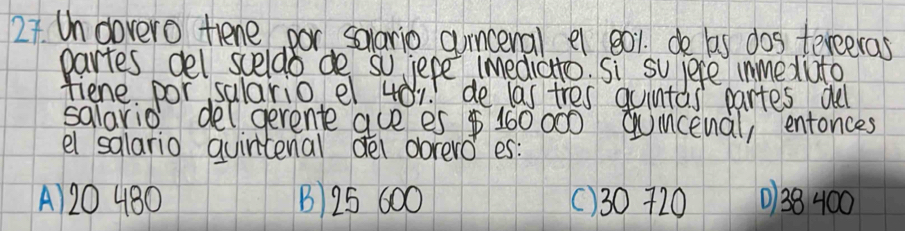 27. Un obrero tiene por salario quincenal el 80%. de las dos terceras
partes del sueldo de su jefe imediato. Si su jefe inmediato
tiene por salario el 40%. de las tres quintas partes del
salario del gerente que es $ 160 000 quincenal, entonces
el salario quintenal del obrero es:
A) 20 480 B) 25 600 C) 30 720 D) 38 400